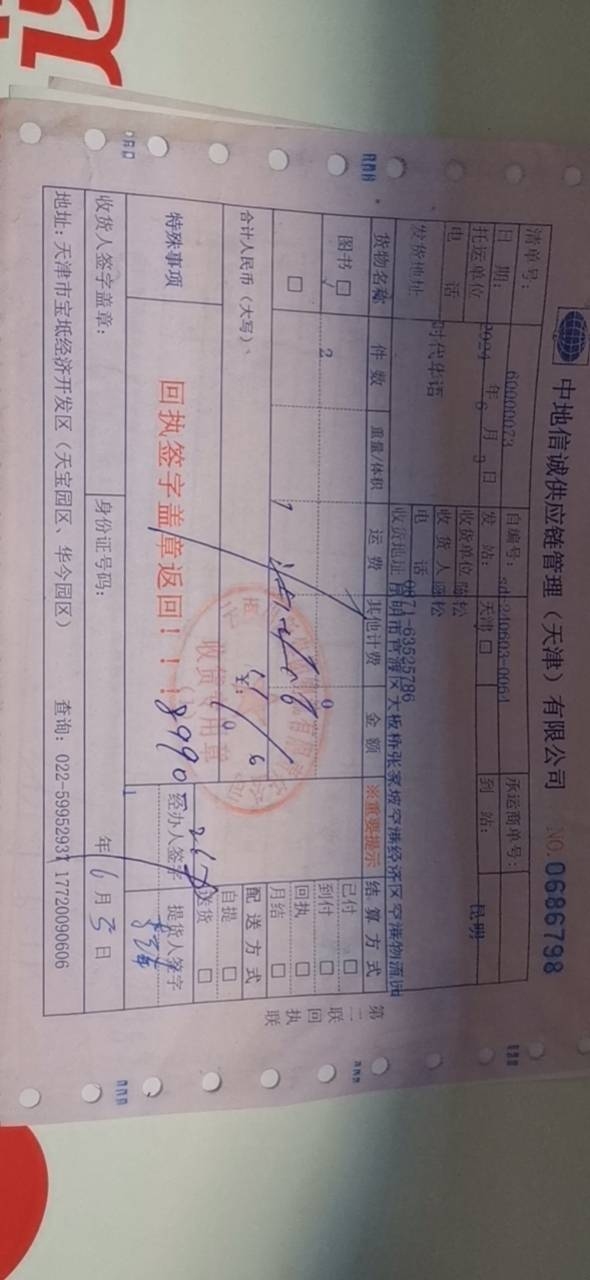 中地信诚供应链管理（天津）有限公司 NO.0686798
清单号： 60000073 自编号：sdr240603-0061 承运商单号：
日期： 2024 年 6 月 3 日 发站： 天津 □ 到站： 昆明
托运单位 时代华语 收货单位 陈松
电话 收货人 陈松
电话 0871-63525786
发货地址 收货地址 昆明市官渡区大板桥张家坡空港经济区空港物流园
货物名称 件数 重量/体积 运费 其他计费 金额 ※重要提示 结算方式
图书 □ 2 0 已付 □
□ 到付 □
回执 □
月结 □
合计人民币（大写）、 ¥: 0 配送方式
自提 □
送货 □
特殊事项 回执签字盖章返回！！！ 经办人签字 提货人签字
收货专用章
8990
收货人签字盖章： 身份证号码： 年 6 月 5 日
地址：天津市宝坻经济开发区（天宝园区、华今园区） 查询：022-59952937 17720090606
第二联 回执联